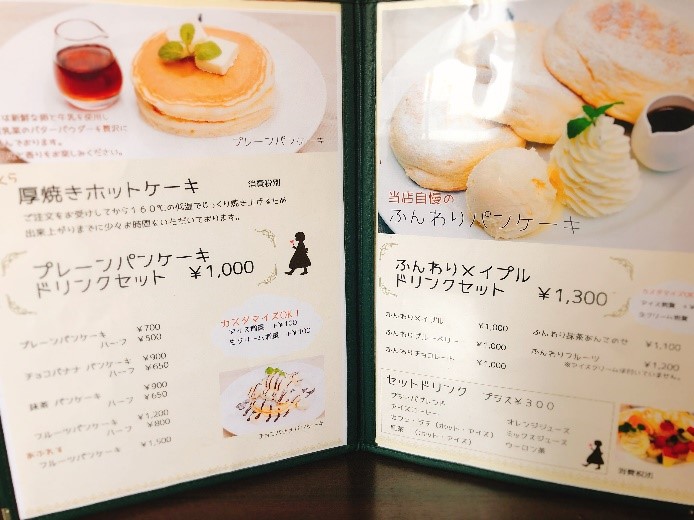 は新鮮な卵と牛乳を使用し
乳業のバターパウダーを贅沢に
香りをお楽しみください。
プレーンパンケーキ
厚焼きホットケーキ 消費税別
ご注文をお受けしてから160℃の低温でじっくり焼き上げるため
出来上がりまでに少々お時間をいただいております。
プレーンパンケーキ
ドリンクセット ¥1,000
カスタマイズOK!
アイス増量 +¥100
生クリーム増量 +¥100
プレーンパンケーキ ¥700
ハーフ ¥500
チョコバナナ パンケーキ ¥900
ハーフ ¥650
抹茶 パンケーキ ¥900
ハーフ ¥650
フルーツパンケーキ ¥1,200
ハーフ ¥800
フルーツパンケーキ ¥1,500
チョコバナナパンケーキ
当店自慢の
ふんわりパンケーキ
ふんわり×イプル
ドリンクセット ¥1,300
アイス増量
生クリーム増量
ふんわり×イプル ¥1,000
ふんわりブルーベリー ¥1,000
ふんわりチョコレート ¥1,000
ふんわり抹茶あんこのせ ¥1,100
ふんわりフルーツ ¥1,200
※アイスクリームは付いていません。
¥1,300
セットドリンク プラス¥300
アイスコーヒー
カフェ・ラテ (ホット・アイス)
紅茶 (ホット・アイス)
オレンジジュース
ミックスジュース
ウーロン茶
消費税別